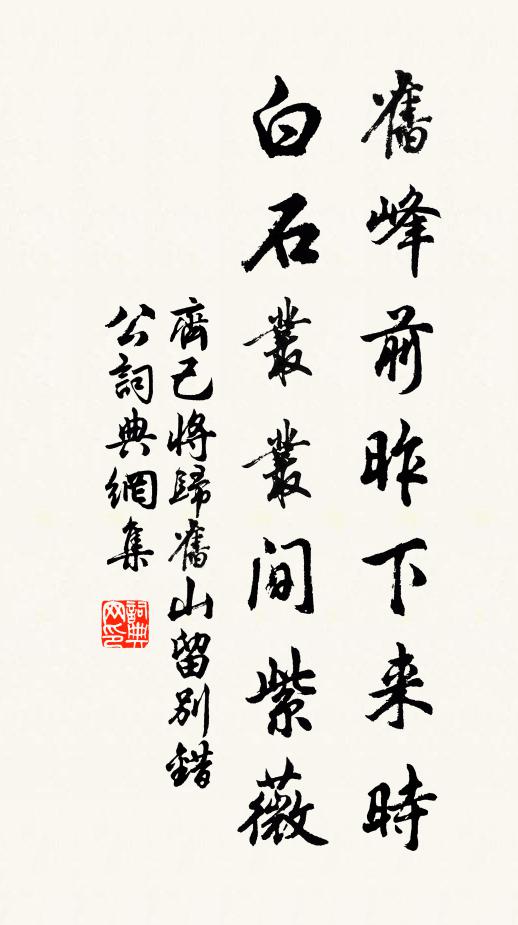 舊峰前昨下来時
白石叢叢間紫薇
齊己将歸舊山留別錯
公詞典網集
詞典网印